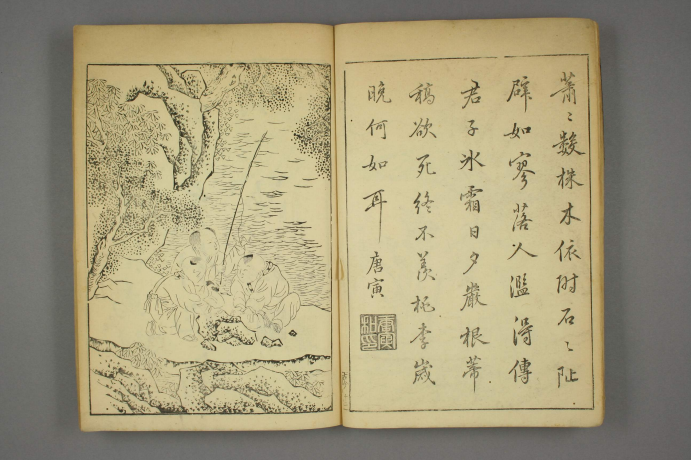 蕭〻數株木依附石〻阯
辟如寥落人濫淂傳
君子氷霜日夕嚴根蒂
稿欲死終不羨桃李歲
晩何如耳
唐寅